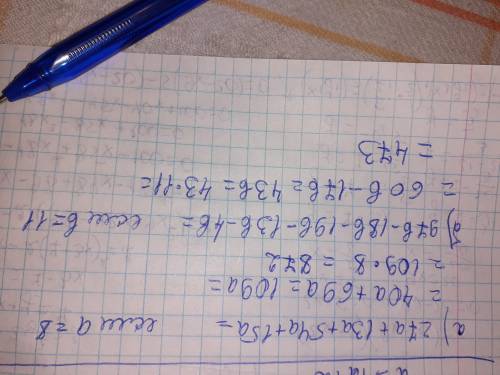 а) 27a+13a+54a+15a= если a=8
= 40a+69a=109a=
= 109·8 = 872
б) 97b-18b-19b-13b-4b= если b=11
= 60b-17b=43b=43·11=
= 473